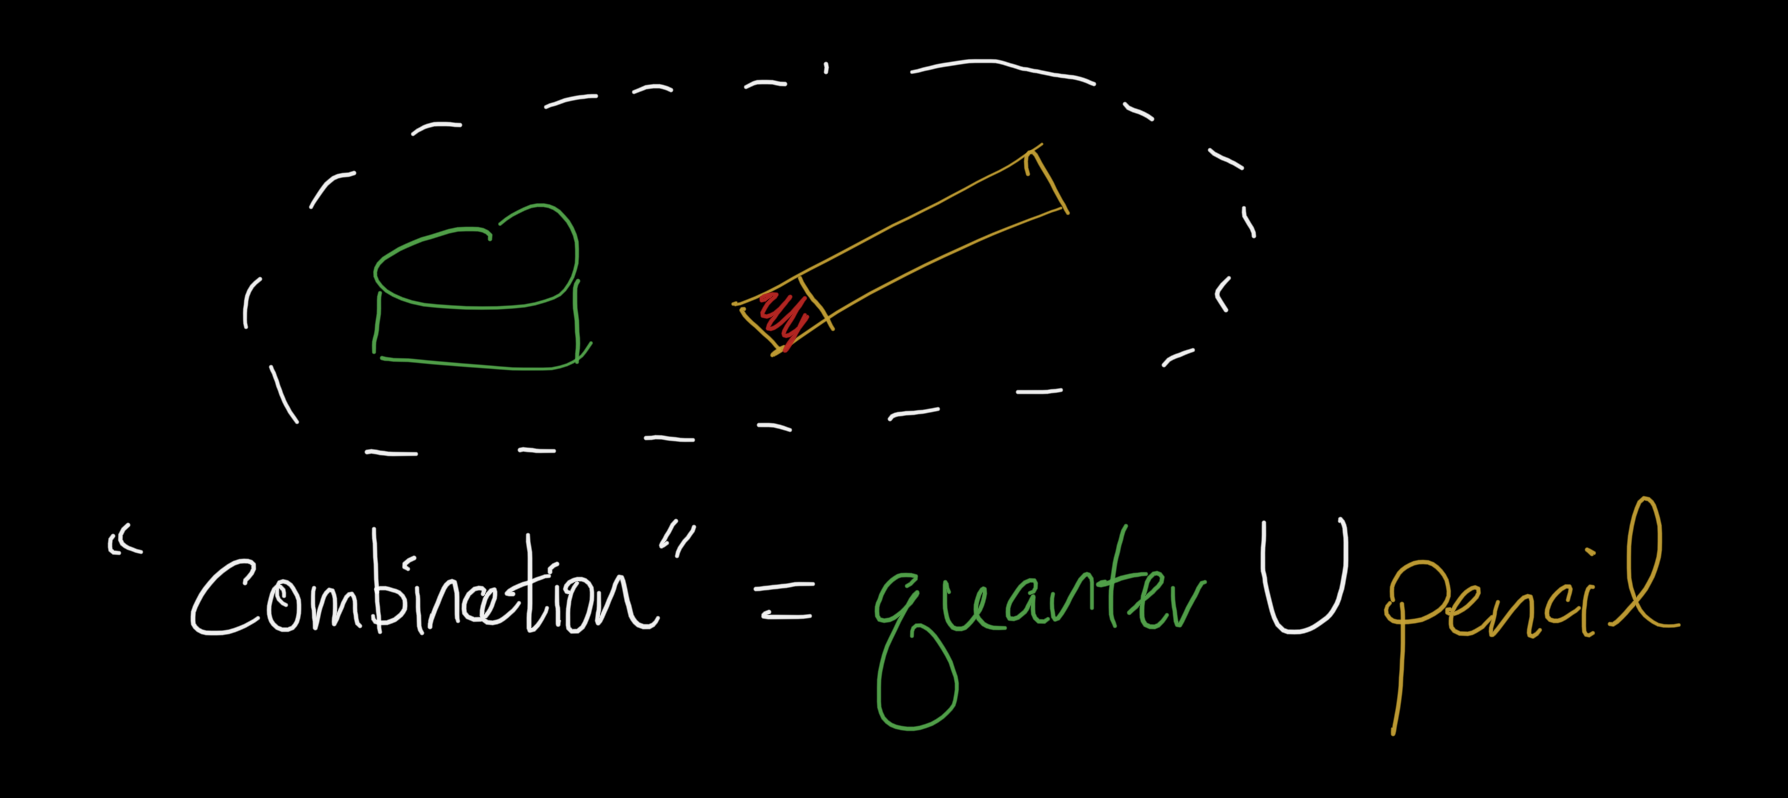 "Combination" = quarter U pencil